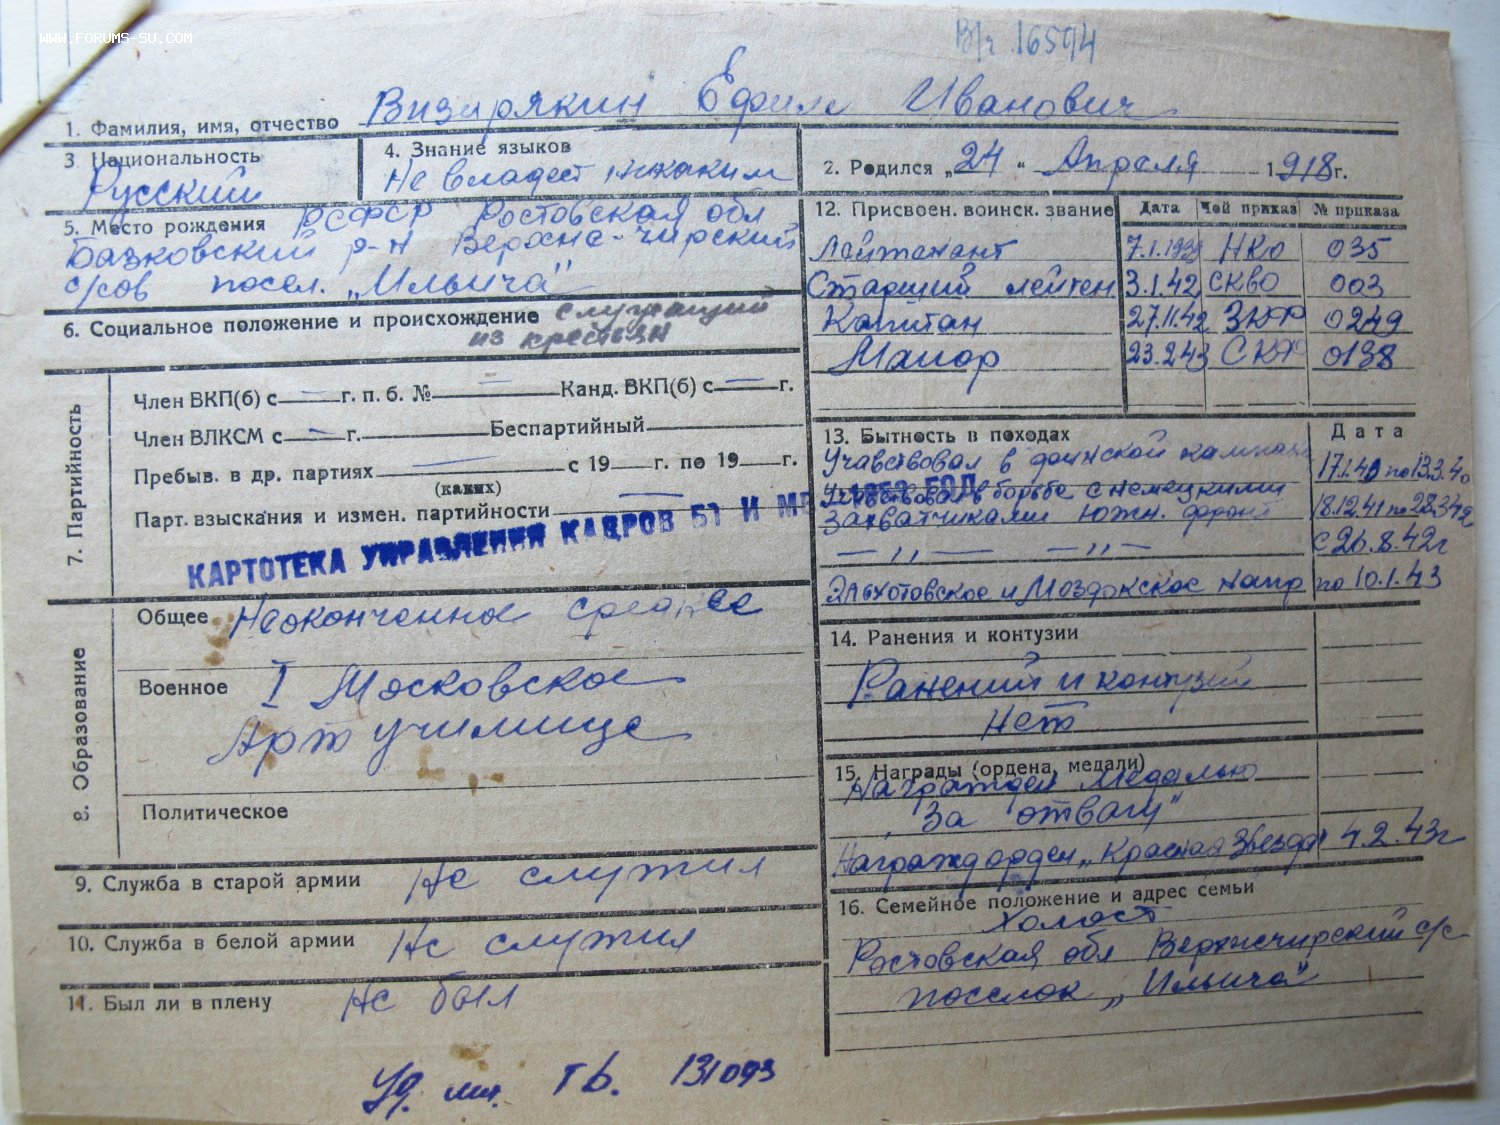 www.forums-su.com
В/г 16594
1. Фамилия, имя, отчество Визирякин Ефим Иванович
3. Национальность Русский
4. Знание языков Не владеет никаким
2. Родился „24" Апреля 1918 г.
5. Место рождения РСФСР Ростовская обл
Базковский р-н Верхне-Чирский
с/сов посел. „Ильича"
6. Социальное положение и происхождение служащий
из крестьян
7. Партийность
Член ВКП(б) с — г. п. б. № — Канд. ВКП(б) с — г.
Член ВЛКСМ с — г. Беспартийный
Пребыв. в др. партиях — с 19 г. по 19 г.
(каких)
Парт. взыскания и измен. партийности —
КАРТОТЕКА УПРАВЛЕНИЯ КАДРОВ БТ И МВ 1953 ГОД
8. Образование
Общее Неоконченное среднее
Военное I Московское
Арт училище
Политическое
9. Служба в старой армии Не служил
10. Служба в белой армии Не служил
11. Был ли в плену Не был
12. Присвоен. воинск. звание Дата Чей приказ № приказа
Лейтенант 7.1.1939 НКО 035
Старший лейтен 3.1.42 СКВО 003
Капитан 27.11.42 ЗКФ 0249
Майор 23.2.43 СКФ 0138
13. Бытность в походах Дата
Учавствовал в финской кампан 17.1.40 по 13.3.40
Учавствовал в борьбе с немецкими
захватчиками южн. фронт 18.12.41 по 28.3.42
— „ — — „ — с 26.8.42г
Эльхотовское и Моздокское напр по 10.1.43
14. Ранения и контузии
Ранений и контузий
нет
15. Награды (ордена, медали)
Награжден медалью
„За отвагу"
Награжд орден „Красная Звезда" 4.2.43г
16. Семейное положение и адрес семьи
Холост
Ростовская обл Верхнечирский с/с
поселок „Ильича"
Уд. ТБ. 131093